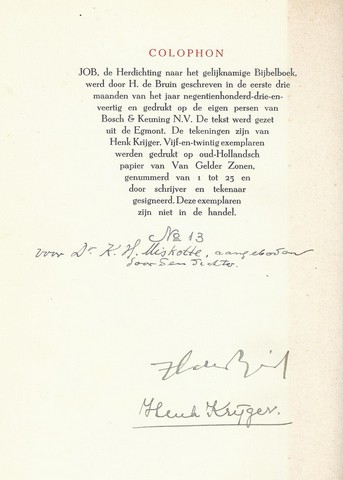 COLOPHON
JOB, de Herdichting naar het gelijknamige Bijbelboek,
werd door H. de Bruin geschreven in de eerste drie
maanden van het jaar negentienhonderd-drie-en-
veertig en gedrukt op de eigen persen van
Bosch & Keuning N.V. De tekst werd gezet
uit de Egmont. De tekeningen zijn van
Henk Krijger. Vijf-en-twintig exemplaren
werden gedrukt op oud-Hollandsch
papier van Van Gelder Zonen,
genummerd van 1 tot 25 en
door schrijver en tekenaar
gesigneerd. Deze exemplaren
zijn niet in de handel.
No 13
voor Dr. K. H. Miskotte, aangeboden
door den dichter.
H de Bruin
Henk Krijger.